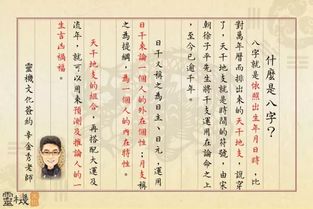 什麼是八字?
八字就是依照出生年月日時,比
對萬年曆而排出來的天干地支,說穿
了,天干地支就是時間的符號,由宋
朝徐子平先生將干支運用在論命之上
,至今已逾千年。
日干又稱之為日主、日元,運用
日干來論一個人的外在個性;月支稱
之為提綱,為一個人的內在特性。
天干地支的組合,再搭配大運及
流年,就可以用來預測及推論人的一
生吉凶禍福。
靈機文化簽約 辛金秀老師
靈機